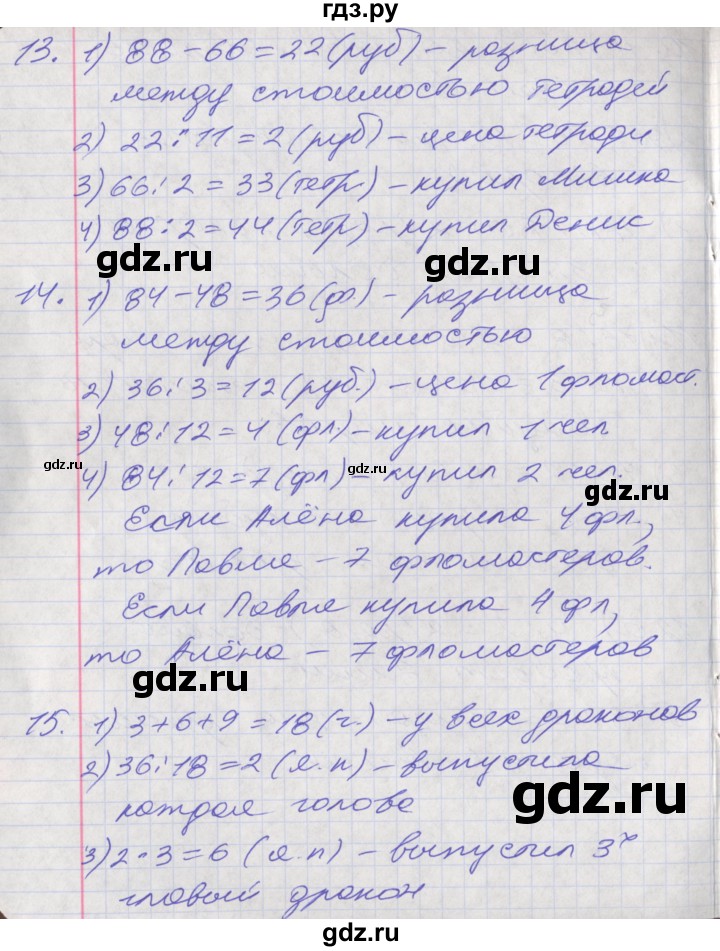 гдз.ру
13. 1) 88-66=22(руб) - разница
между стоимостью тетрадей
2) 22:11=2(руб) - цена тетради
3) 66:2=33(тетр) - купил Мишка
4) 88:2=44(тетр) - купил Деник
gdz.ru gdz.ru
14. 1) 84-48=36(ф) - разница
между стоимостью
2) 36:3=12(руб.) - цена 1 фломаст.
3) 48:12=4(фл) - купил 1 чел
gdz.ru gdz.ru
4) 84:12=7(фл) - купил 2 чел.
gdz.ru
Если Алёна купила 4 фл,
то Павле - 7 фломастеров.
Если Павле купила 4 фл,
то Алёна - 7 фломастеров
gdz.ru gdz.ru
15. 1) 3+6+9=18(г.) - у всех драконов
2) 36:18=2(я.п) - выпустила
каждая голова
gdz.ru
3) 2·3=6(я.п) - выпустил 3х
главый дракон
gdz.ru